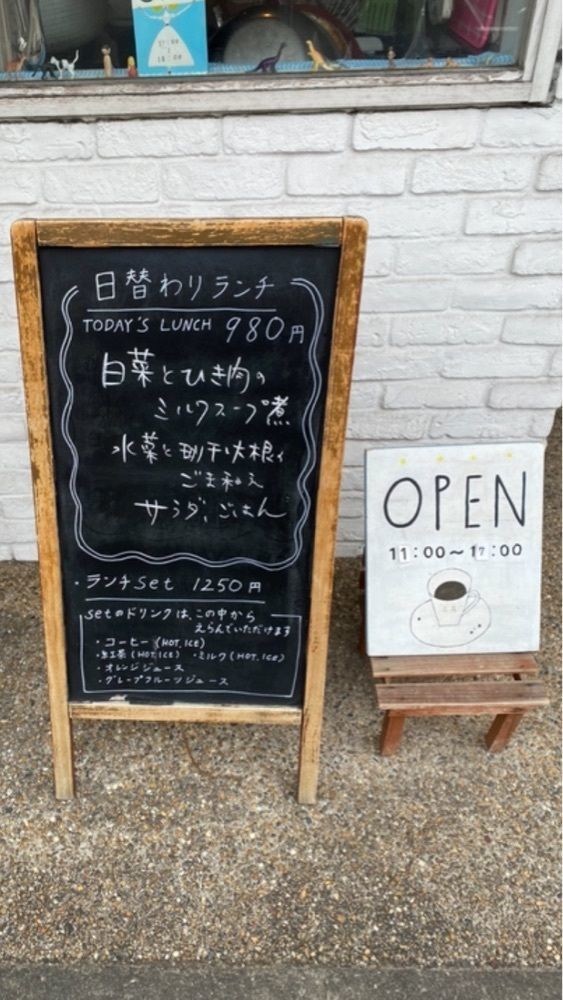 17:00
18:00
日替わりランチ
TODAY'S LUNCH 980円
白菜とひき肉の
ミルクスープ煮
水菜と切干大根の
ごま和え
サラダ、ごはん
・ランチset 1250円
setのドリンクは、この中から
えらんでいただけます
・コーヒー (HOT, ICE)
・紅茶 (HOT, ICE) ・ミルク (HOT, ICE)
・オレンジジュース
・グレープフルーツジュース
OPEN
11:00〜17:00